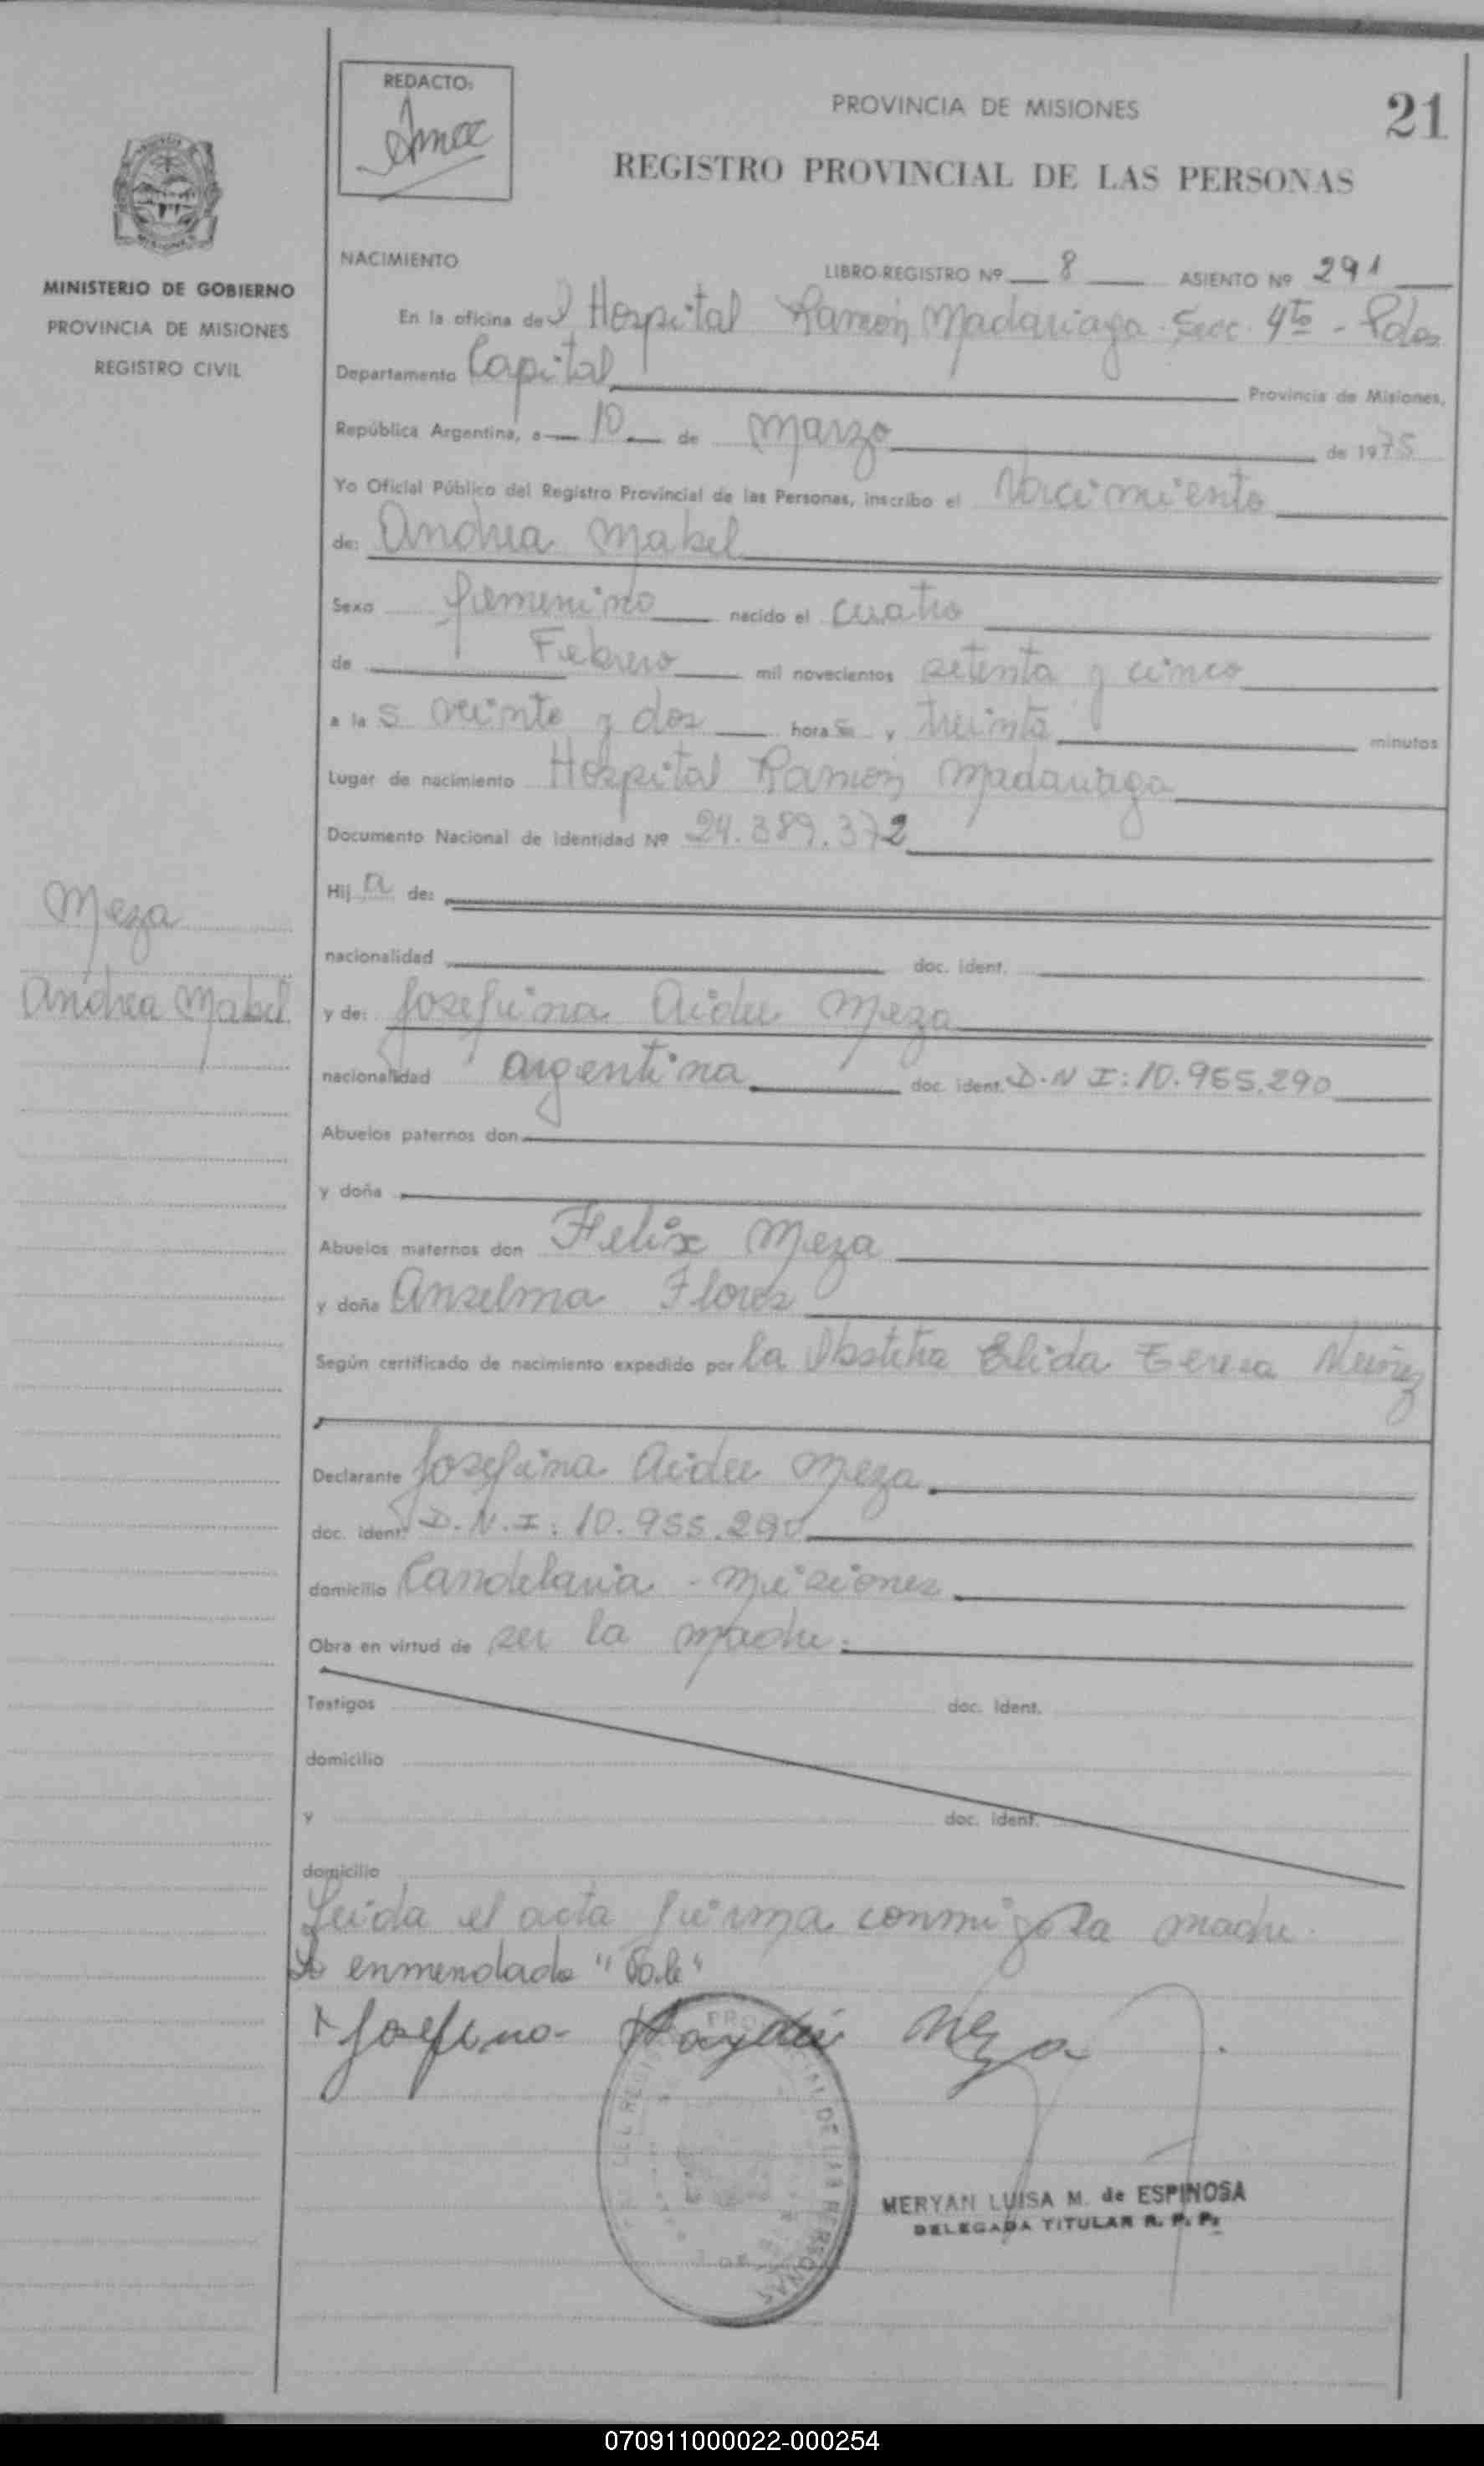 REDACTO:
PROVINCIA DE MISIONES
21
REGISTRO PROVINCIAL DE LAS PERSONAS
MINISTERIO DE GOBIERNO
PROVINCIA DE MISIONES
REGISTRO CIVIL
NACIMIENTO
LIBRO-REGISTRO Nº 8 ASIENTO Nº 291
En la oficina del Hospital Ramón Madariaga - Secc. 4ta - Pdas
Departamento Capital Provincia de Misiones,
República Argentina, a 10 de Marzo de 1975
Yo Oficial Público del Registro Provincial de las Personas, inscribo el Nacimiento
de: Andrea Mabel
Sexo femenino nacido el cuatro
de Febrero mil novecientos setenta y cinco
a las veinte y dos horas y treinta minutos
Lugar de nacimiento Hospital Ramón Madariaga
Documento Nacional de Identidad Nº 24.389.372
Hija de:
nacionalidad doc. ident.
Meza
Andrea Mabel
y de: Josefina Aidee Meza
nacionalidad argentina doc. ident. D.N I: 10.955.290
Abuelos paternos don
y doña
Abuelos maternos don Felix Meza
y doña Anselma Flores
Según certificado de nacimiento expedido por la Obstetra Elida Teresa Nuñez
Declarante Josefina Aidee Meza
doc. ident. D.N.I: 10.955.290
domicilio Candelaria - Misiones
Obra en virtud de ser la madre.
Testigos doc. ident.
domicilio
y doc. ident.
domicilio
Leida el acta firma conmigo la madre.
Lo enmendado "Vale"
Josefina Haydée Meza
MERYAN LUISA M. de ESPINOSA
DELEGADA TITULAR R. P. P.
070911000022-000254